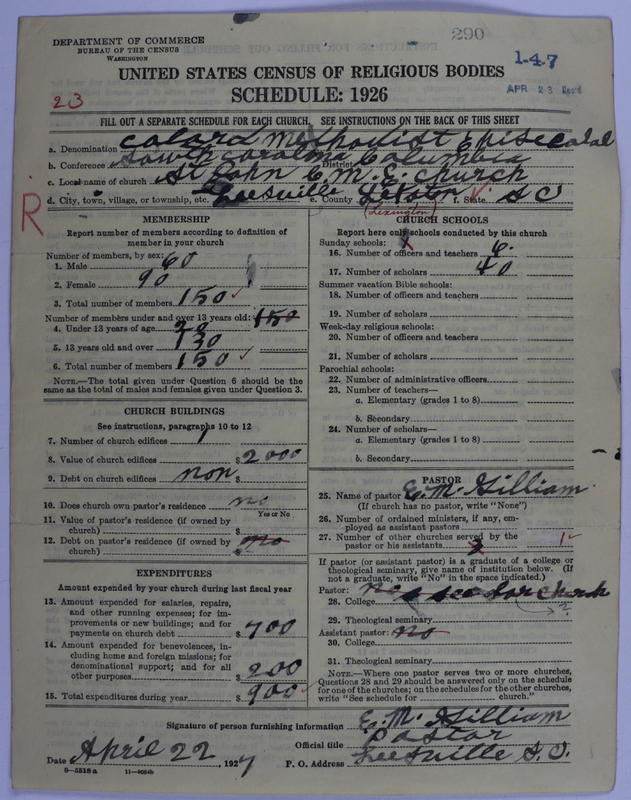 290
DEPARTMENT OF COMMERCE
BUREAU OF THE CENSUS
WASHINGTON
1-47
APR 23 Rec'd
UNITED STATES CENSUS OF RELIGIOUS BODIES
SCHEDULE: 1926
23
FILL OUT A SEPARATE SCHEDULE FOR EACH CHURCH. SEE INSTRUCTIONS ON THE BACK OF THIS SHEET
a. Denomination Colord Methodist Episcopal
b. Conference South Carolina District Columbia
c. Local name of church St John C. M. E. Church
d. City, town, village, or township, etc. Leesville e. County f. State S C
(Lexington)
R
MEMBERSHIP
Report number of members according to definition of member in your church
Number of members, by sex:
1. Male 60
2. Female 90
3. Total number of members 150
Number of members under and over 13 years old: 150
4. Under 13 years of age 20
5. 13 years old and over 130
6. Total number of members 150
NOTE.—The total given under Question 6 should be the
same as the total of males and females given under Question 3.
CHURCH BUILDINGS
See instructions, paragraphs 10 to 12
7. Number of church edifices 1
8. Value of church edifices $ 2000
9. Debt on church edifices non $
10. Does church own pastor's residence no
Yes or No
11. Value of pastor's residence (if owned by
church) $
12. Debt on pastor's residence (if owned by
church) $ no
EXPENDITURES
Amount expended by your church during last fiscal year
13. Amount expended for salaries, repairs,
and other running expenses; for im-
provements or new buildings; and for
payments on church debt $ 700
14. Amount expended for benevolences, in-
cluding home and foreign missions; for
denominational support; and for all
other purposes $ 200
15. Total expenditures during year $ 900
CHURCH SCHOOLS
Report here only schools conducted by this church
Sunday schools:
16. Number of officers and teachers 6.
17. Number of scholars 40
Summer vacation Bible schools:
18. Number of officers and teachers
19. Number of scholars
Week-day religious schools:
20. Number of officers and teachers
21. Number of scholars
Parochial schools:
22. Number of administrative officers
23. Number of teachers—
a. Elementary (grades 1 to 8)
b. Secondary
24. Number of scholars—
a. Elementary (grades 1 to 8)
b. Secondary
PASTOR
25. Name of pastor E. M. Gilliam
(If church has no pastor, write "None")
26. Number of ordained ministers, if any, em-
ployed as assistant pastors
27. Number of other churches served by the
pastor or his assistants 1
If pastor (or assistant pastor) is a graduate of a college or
theological seminary, give name of institution below. (If
not a graduate, write "No" in the space indicated.)
Pastor: no
28. College church
29. Theological seminary
Assistant pastor: no
30. College
31. Theological seminary
NOTE.—Where one pastor serves two or more churches,
Questions 28 and 29 should be answered only on the schedule
for one of the churches; on the schedules for the other churches,
write "See schedule for church."
Signature of person furnishing information E. M. Gilliam
Official title Pastor
Date April 22, 1927 P. O. Address Leesville S. C.
8-5518a 11-9054b